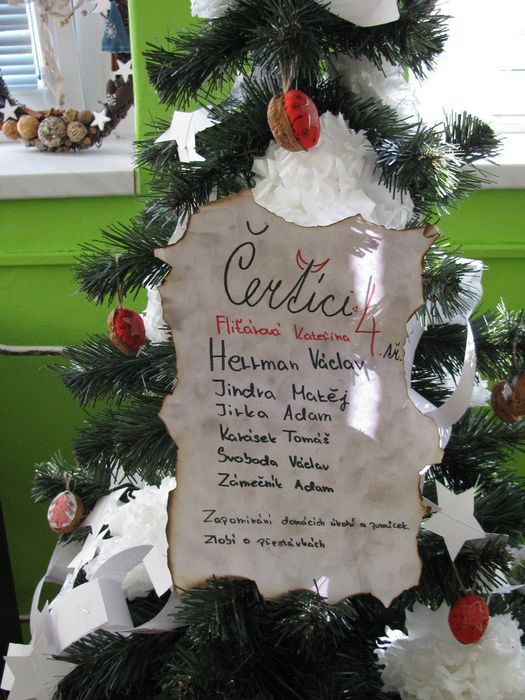 Čertíci 4. tř.
Fliťárová Kateřina
Herrman Václav
Jindra Matěj
Jirka Adam
Karásek Tomáš
Svoboda Václav
Zámečník Adam
Zapomínání domácích úkolů a pomůcek
Zlobí o přestávkách